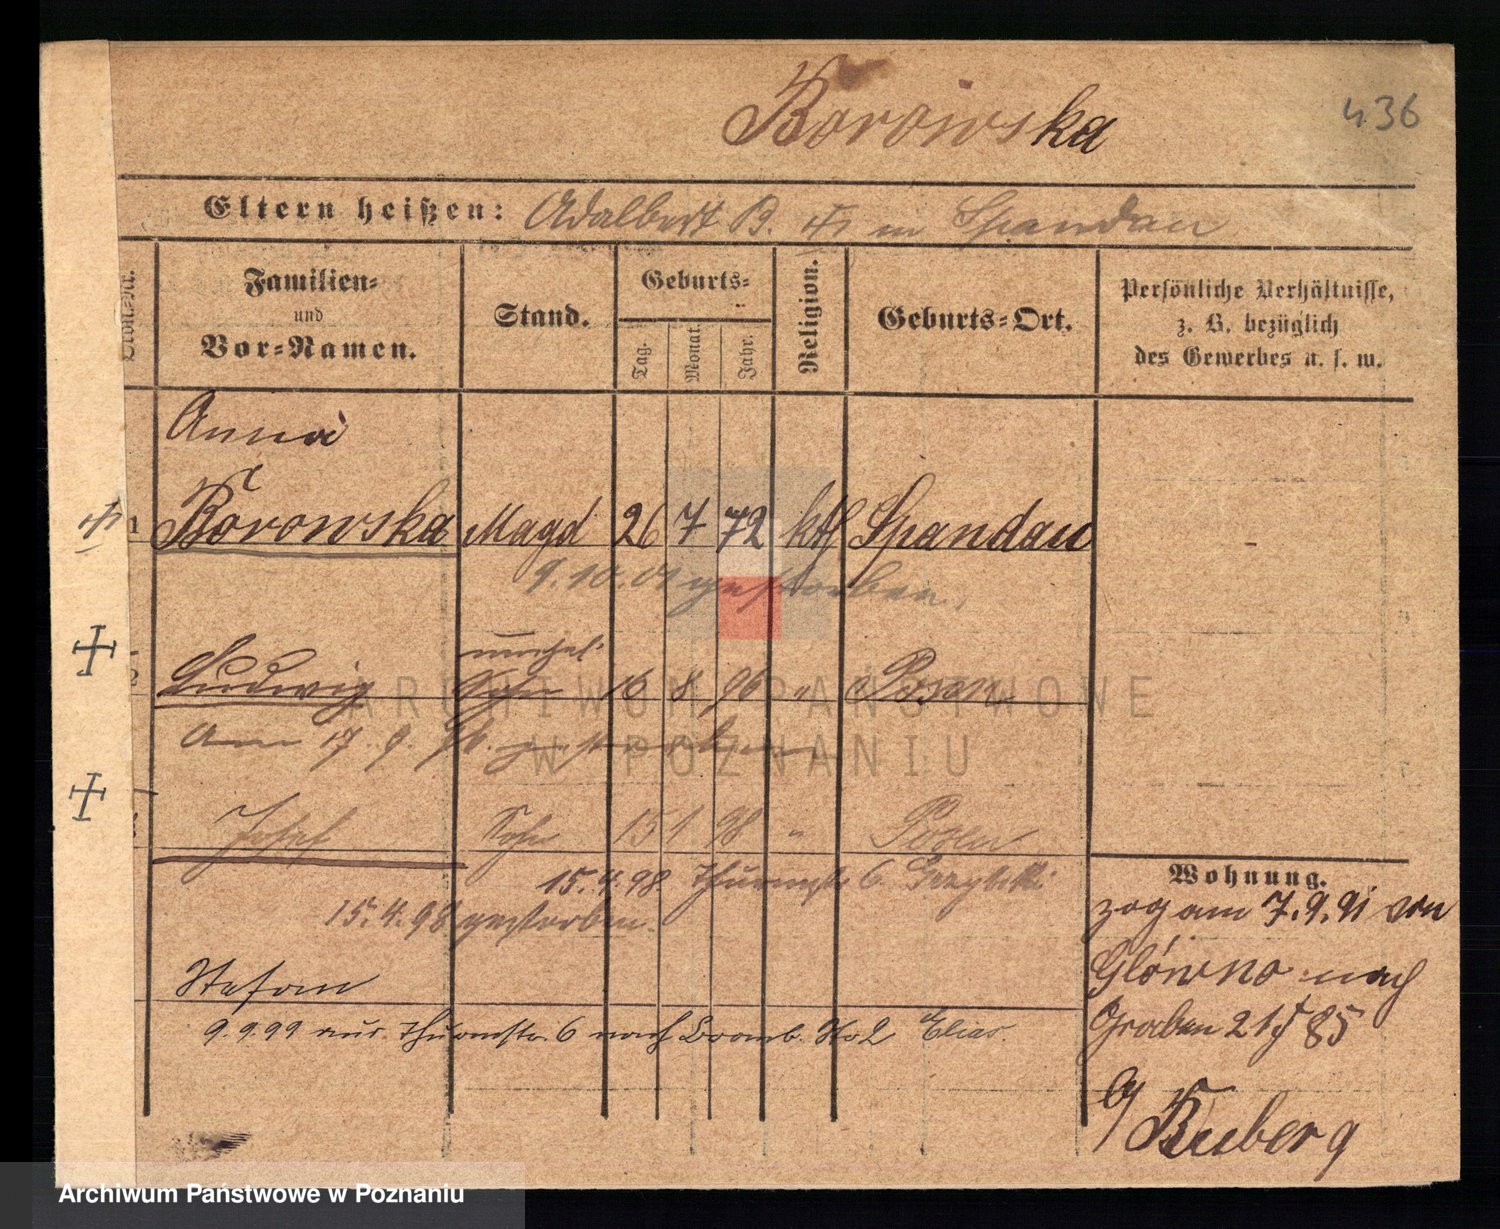 Borowska
436
Eltern heißen: Adalbert B. in Spandau
Familien-
und
Vor-Namen.
Stand.
Geburts-
Tag.
Monat.
Jahr.
Religion.
Geburts-Ort.
Persönliche Verhältnisse,
z. B. bezüglich
des Gewerbes u. s. w.
Anna
1 Borowska Magd 26 7 72 kth Spandau -
9.10.01 gestorben.
unehel.
2 Ludwig Sohn 16 8 96 " Posen
Am 17.9.96. gestorben
Josef Sohn 15 1 98 " Posen
15.4.98 Thurmstr 6.
15.4.98 gestorben.
Stefan
9.9.99 aus Thurmstr. 6 nach Bromb. Str 2 Elias.
Wohnung.
zog am 7.9.91 von
Glówno nach
Graben 21 85
b/ Kuberg
ARCHIWUM PAŃSTWOWE
W POZNANIU
Archiwum Państwowe w Poznaniu